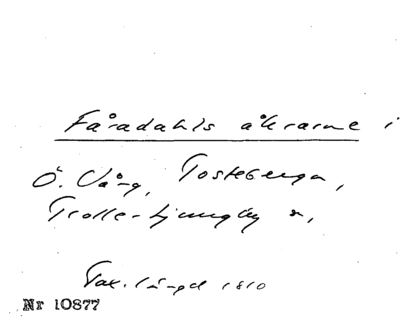 Fåradahls åkrarne i
Ö. Vång, Tosteberga,
Trolle-Ljungby s,
Tax. längd 1810
Nr 10877